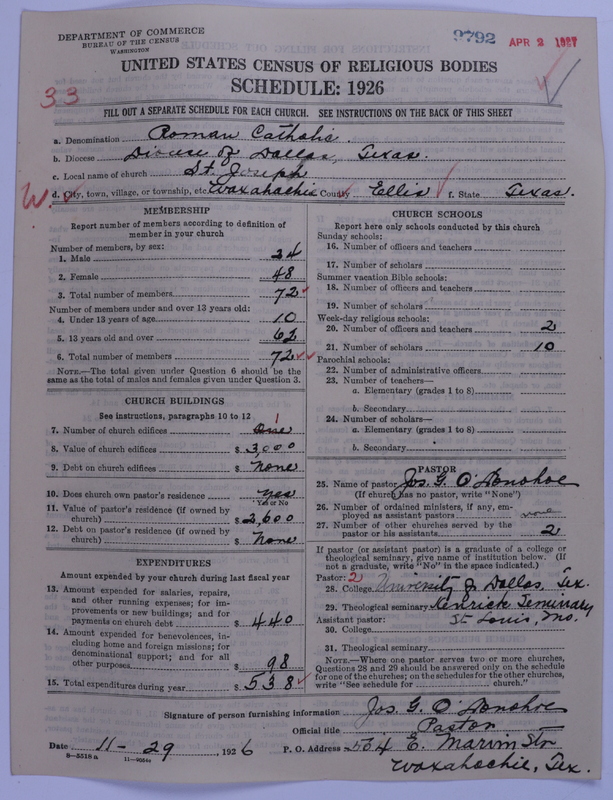 DEPARTMENT OF COMMERCE
BUREAU OF THE CENSUS
WASHINGTON
9792 APR 2 1927
UNITED STATES CENSUS OF RELIGIOUS BODIES
SCHEDULE: 1926
33
FILL OUT A SEPARATE SCHEDULE FOR EACH CHURCH. SEE INSTRUCTIONS ON THE BACK OF THIS SHEET
a. Denomination Roman Catholic.
b. Diocese Diocese of Dallas, Texas.
c. Local name of church St. Joseph
W. d. City, town, village, or township, etc. Waxahachie County Ellis f. State Texas.
MEMBERSHIP
Report number of members according to definition of
member in your church
Number of members, by sex:
1. Male 24
2. Female 48
3. Total number of members 72
Number of members under and over 13 years old:
4. Under 13 years of age 10
5. 13 years old and over 62
6. Total number of members 72
NOTE.—The total given under Question 6 should be the
same as the total of males and females given under Question 3.
CHURCH BUILDINGS
See instructions, paragraphs 10 to 12
7. Number of church edifices One 1
8. Value of church edifices $ 3,000
9. Debt on church edifices $ None
10. Does church own pastor's residence Yes
Yes or No
11. Value of pastor's residence (if owned by
church) $ 2,600
12. Debt on pastor's residence (if owned by
church) $ None
EXPENDITURES
Amount expended by your church during last fiscal year
13. Amount expended for salaries, repairs,
and other running expenses; for im-
provements or new buildings; and for
payments on church debt $ 440
14. Amount expended for benevolences, in-
cluding home and foreign missions; for
denominational support; and for all
other purposes $ 98
15. Total expenditures during year $ 538
CHURCH SCHOOLS
Report here only schools conducted by this church
Sunday schools:
16. Number of officers and teachers
17. Number of scholars
Summer vacation Bible schools:
18. Number of officers and teachers
19. Number of scholars
Week-day religious schools:
20. Number of officers and teachers 2
21. Number of scholars 10
Parochial schools:
22. Number of administrative officers
23. Number of teachers—
a. Elementary (grades 1 to 8)
b. Secondary
24. Number of scholars—
a. Elementary (grades 1 to 8)
b. Secondary
PASTOR
25. Name of pastor Jos. G. O'Donohoe
(If church has no pastor, write "None")
26. Number of ordained ministers, if any, em-
ployed as assistant pastors none
27. Number of other churches served by the
pastor or his assistants 2
If pastor (or assistant pastor) is a graduate of a college or
theological seminary, give name of institution below. (If
not a graduate, write "No" in the space indicated.)
Pastor: 2
28. College University of Dallas, Tex.
29. Theological seminary Kenrick Seminary
Assistant pastor: St. Louis, Mo.
30. College
31. Theological seminary
NOTE.—Where one pastor serves two or more churches,
Questions 28 and 29 should be answered only on the schedule
for one of the churches; on the schedules for the other churches,
write "See schedule for church."
Signature of person furnishing information Jos. G. O'Donohoe
Official title Pastor
Date 11-29, 1926 P. O. Address 504 E. Marvin Str
8—5518 a 11—9554 Waxahachie, Tex.